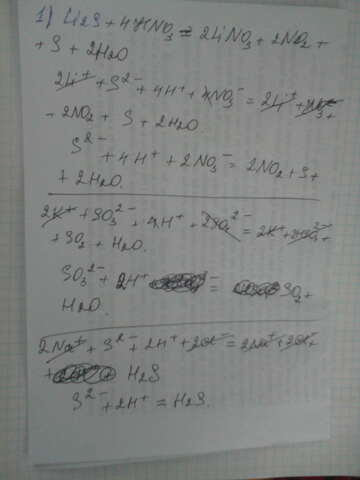 1) Li2S + 4HNO3 = 2LiNO3 + 2NO2 +
+ S + 2H2O
2Li⁺ + S²⁻ + 4H⁺ + 4NO3⁻ = 2Li⁺ +
+ 2NO2 + S + 2H2O
S²⁻
+ 4H⁺ + 2NO3⁻ = 2NO2 + S +
+ 2H2O.
2K⁺ + SO3²⁻ + 4H⁺ + 2SO4²⁻ = 2K⁺ +
+ SO2 + H2O.
SO3²⁻ + 2H⁺ = SO2 +
H2O.
2Na⁺ + S²⁻ + 2H⁺ + 2Cl⁻ = 2Na⁺ + 2Cl⁻ +
+ H2S
S²⁻ + 2H⁺ = H2S.